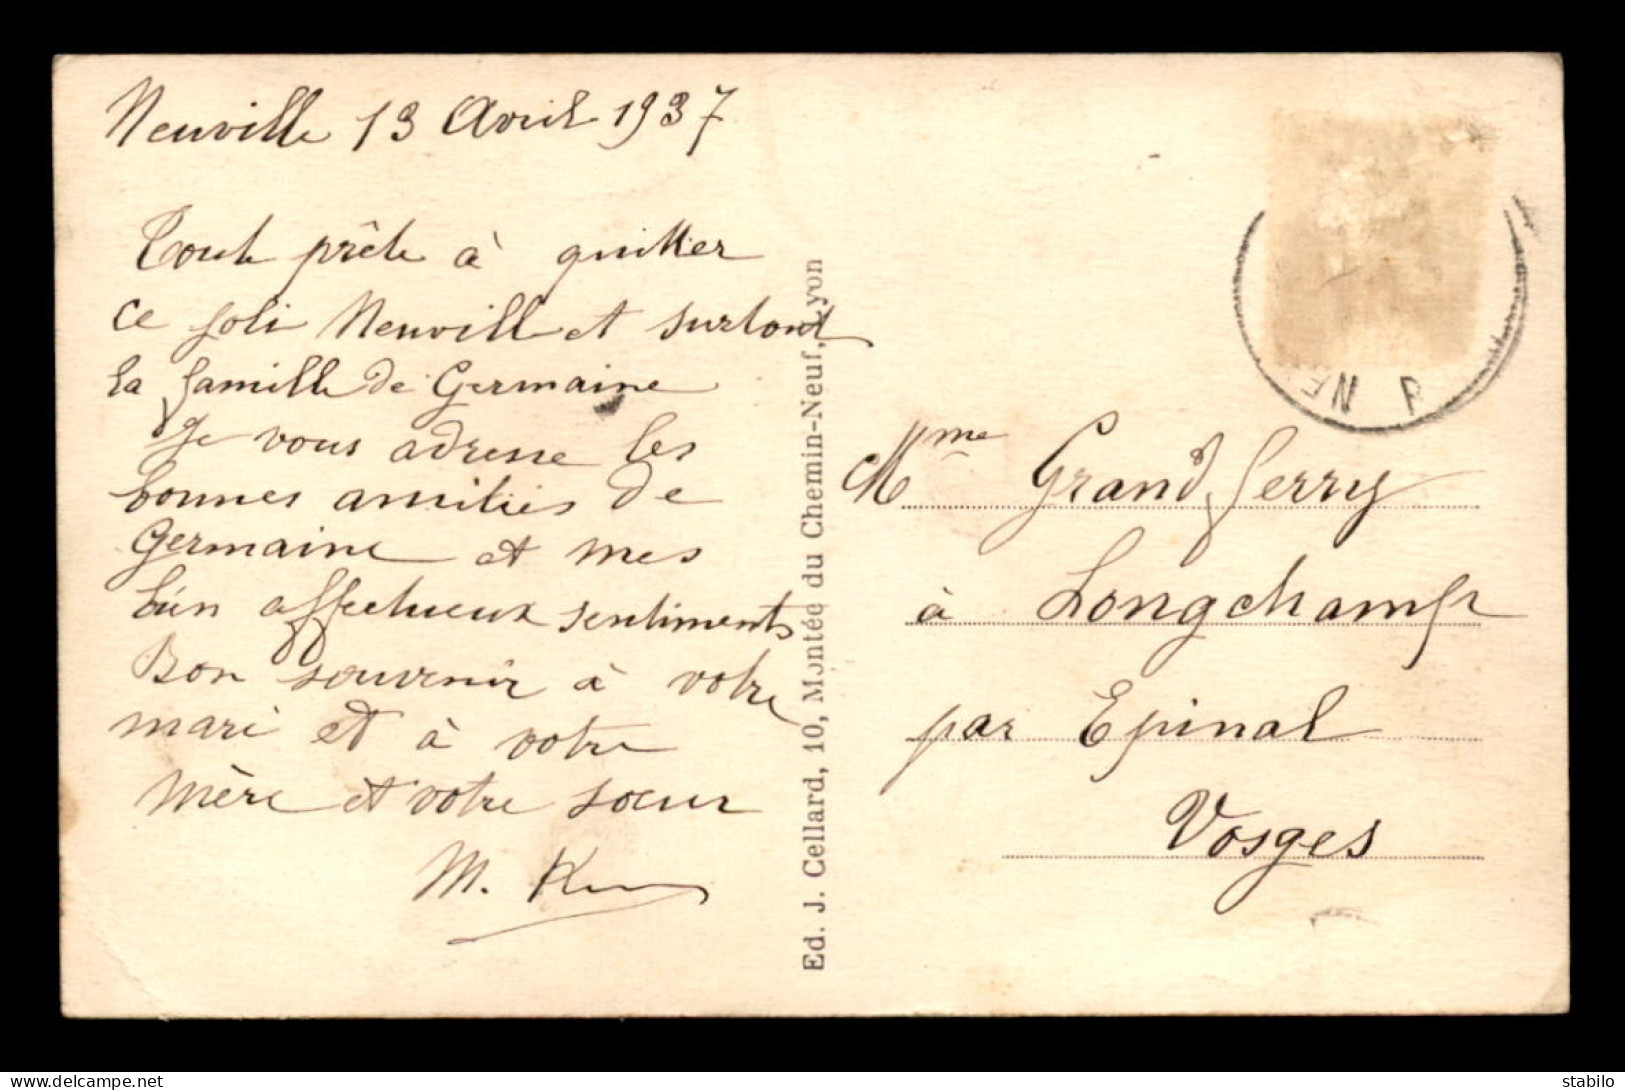 Neuville 13 Avril 1937
Tout prête à quitter
ce joli Neuville et surtout
la famille de Germaine
Je vous adresse les
bonnes amitiés de
Germaine et mes
bien affectueux sentiments
Bon souvenir à votre
mari et à votre
mère et votre sœur
M.
Ed. J. Cellard, 10, Montée du Chemin-Neuf, Lyon
NE
Mme Grand'Ferry
à Longchamp
par Epinal
Vosges
https://www.delcampe.net
stabilo